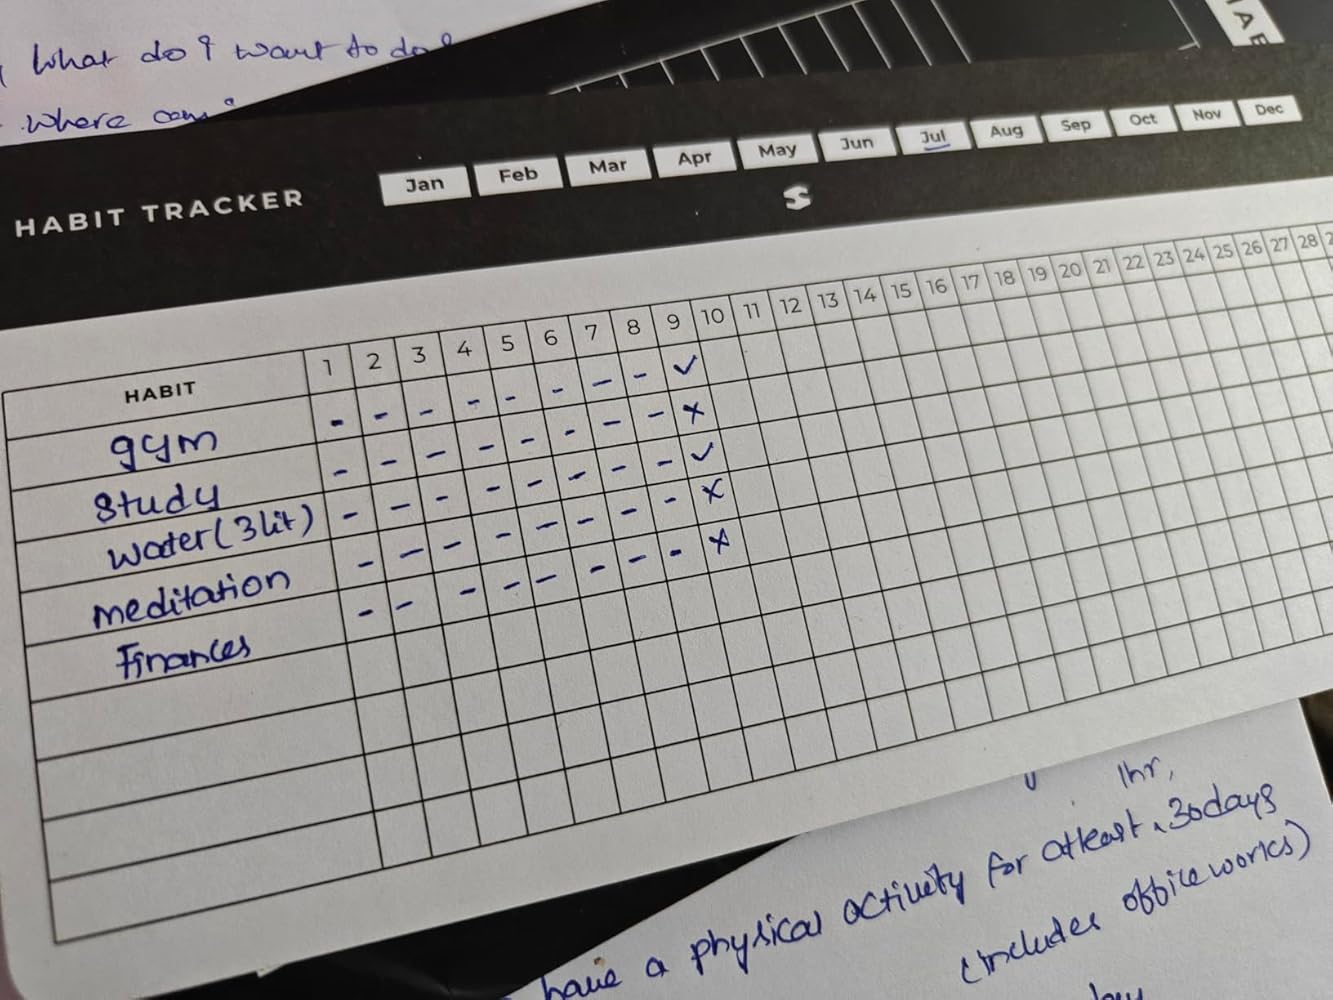 What do I want to do?
Where can
HABIT TRACKER
Jan Feb Mar Apr May Jun Jul Aug Sep Oct Nov Dec
HABIT 1 2 3 4 5 6 7 8 9 10 11 12 13 14 15 16 17 18 19 20 21 22 23 24 25 26 27 28
gym - - - - - - - - ✓
Study - - - - - - - - ×
Water (3 lit) - - - - - - - - ✓
meditation - - - - - - - - ×
Finances - - - - - - - - ×
1hr,
have a physical activity for atleast 30days
(includes office works)